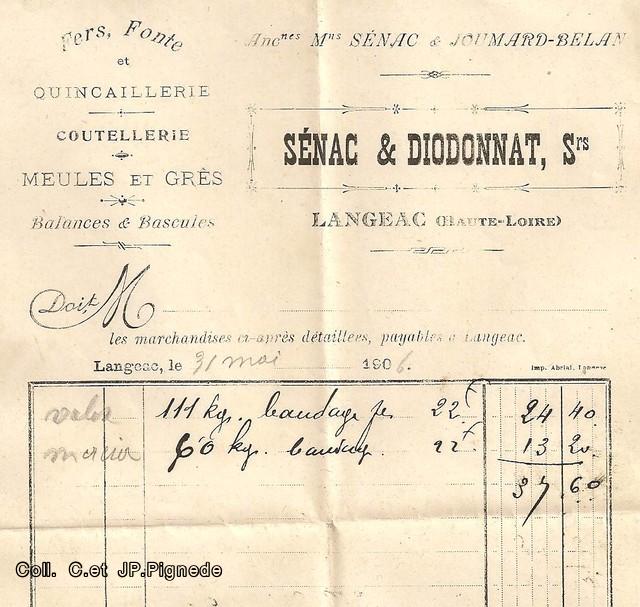 Fers, Fonte
et
QUINCAILLERIE
COUTELLERIE
MEULES ET GRÈS
Balances & Bascules
Ancnes Mns SÉNAC & JOUMARD-BELAN
SÉNAC & DIODONNAT, Srs
LANGEAC (HAUTE-LOIRE)
Doit M
les marchandises ci-après détaillées, payables à Langeac.
Langeac, le 31 mai 1906.
Imp. Abrial, Langeac
111 kg. bandage fer 22f 24 40
60 kg. 22f 13 20
37 60
Coll. C.et JP.Pignede